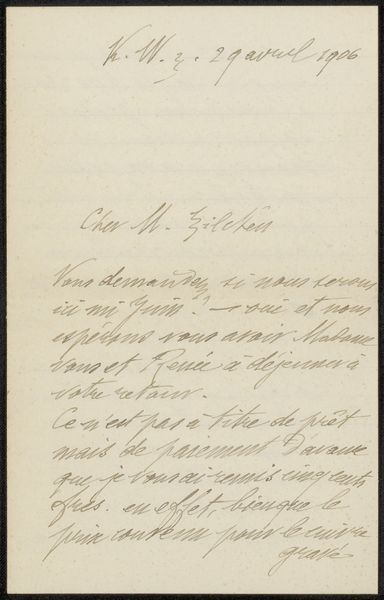 K. W. z. 29 avril 1906
Cher M. Zilcken
Vous demandez si nous serons
ici mi Juin? — oui et nous
espérons vous avoir Madame
vous et Renée à déjeuner à
votre retour.
Ce n'est pas à titre de prêt
mais de paiement d'avance
que je vous ai remis cinq cents
frcs. en effet, bien que le
prix convenu pour le cuivre
gravé